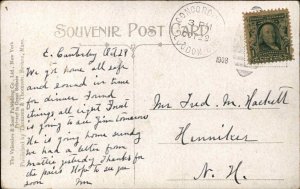 SOUVENIR POST CARD
CONCORD
3 PM
1908
E. Canterbury
We got home all safe
and sound in time
for dinner. Found
things all right Frost
is going to see Jim tomorrow
He is going home sunday
we had a letter from
mattie yesterday Thanks for
the pairs Hope to see you
soon
Mr Fred M. Hackett
Henniker
N. H.